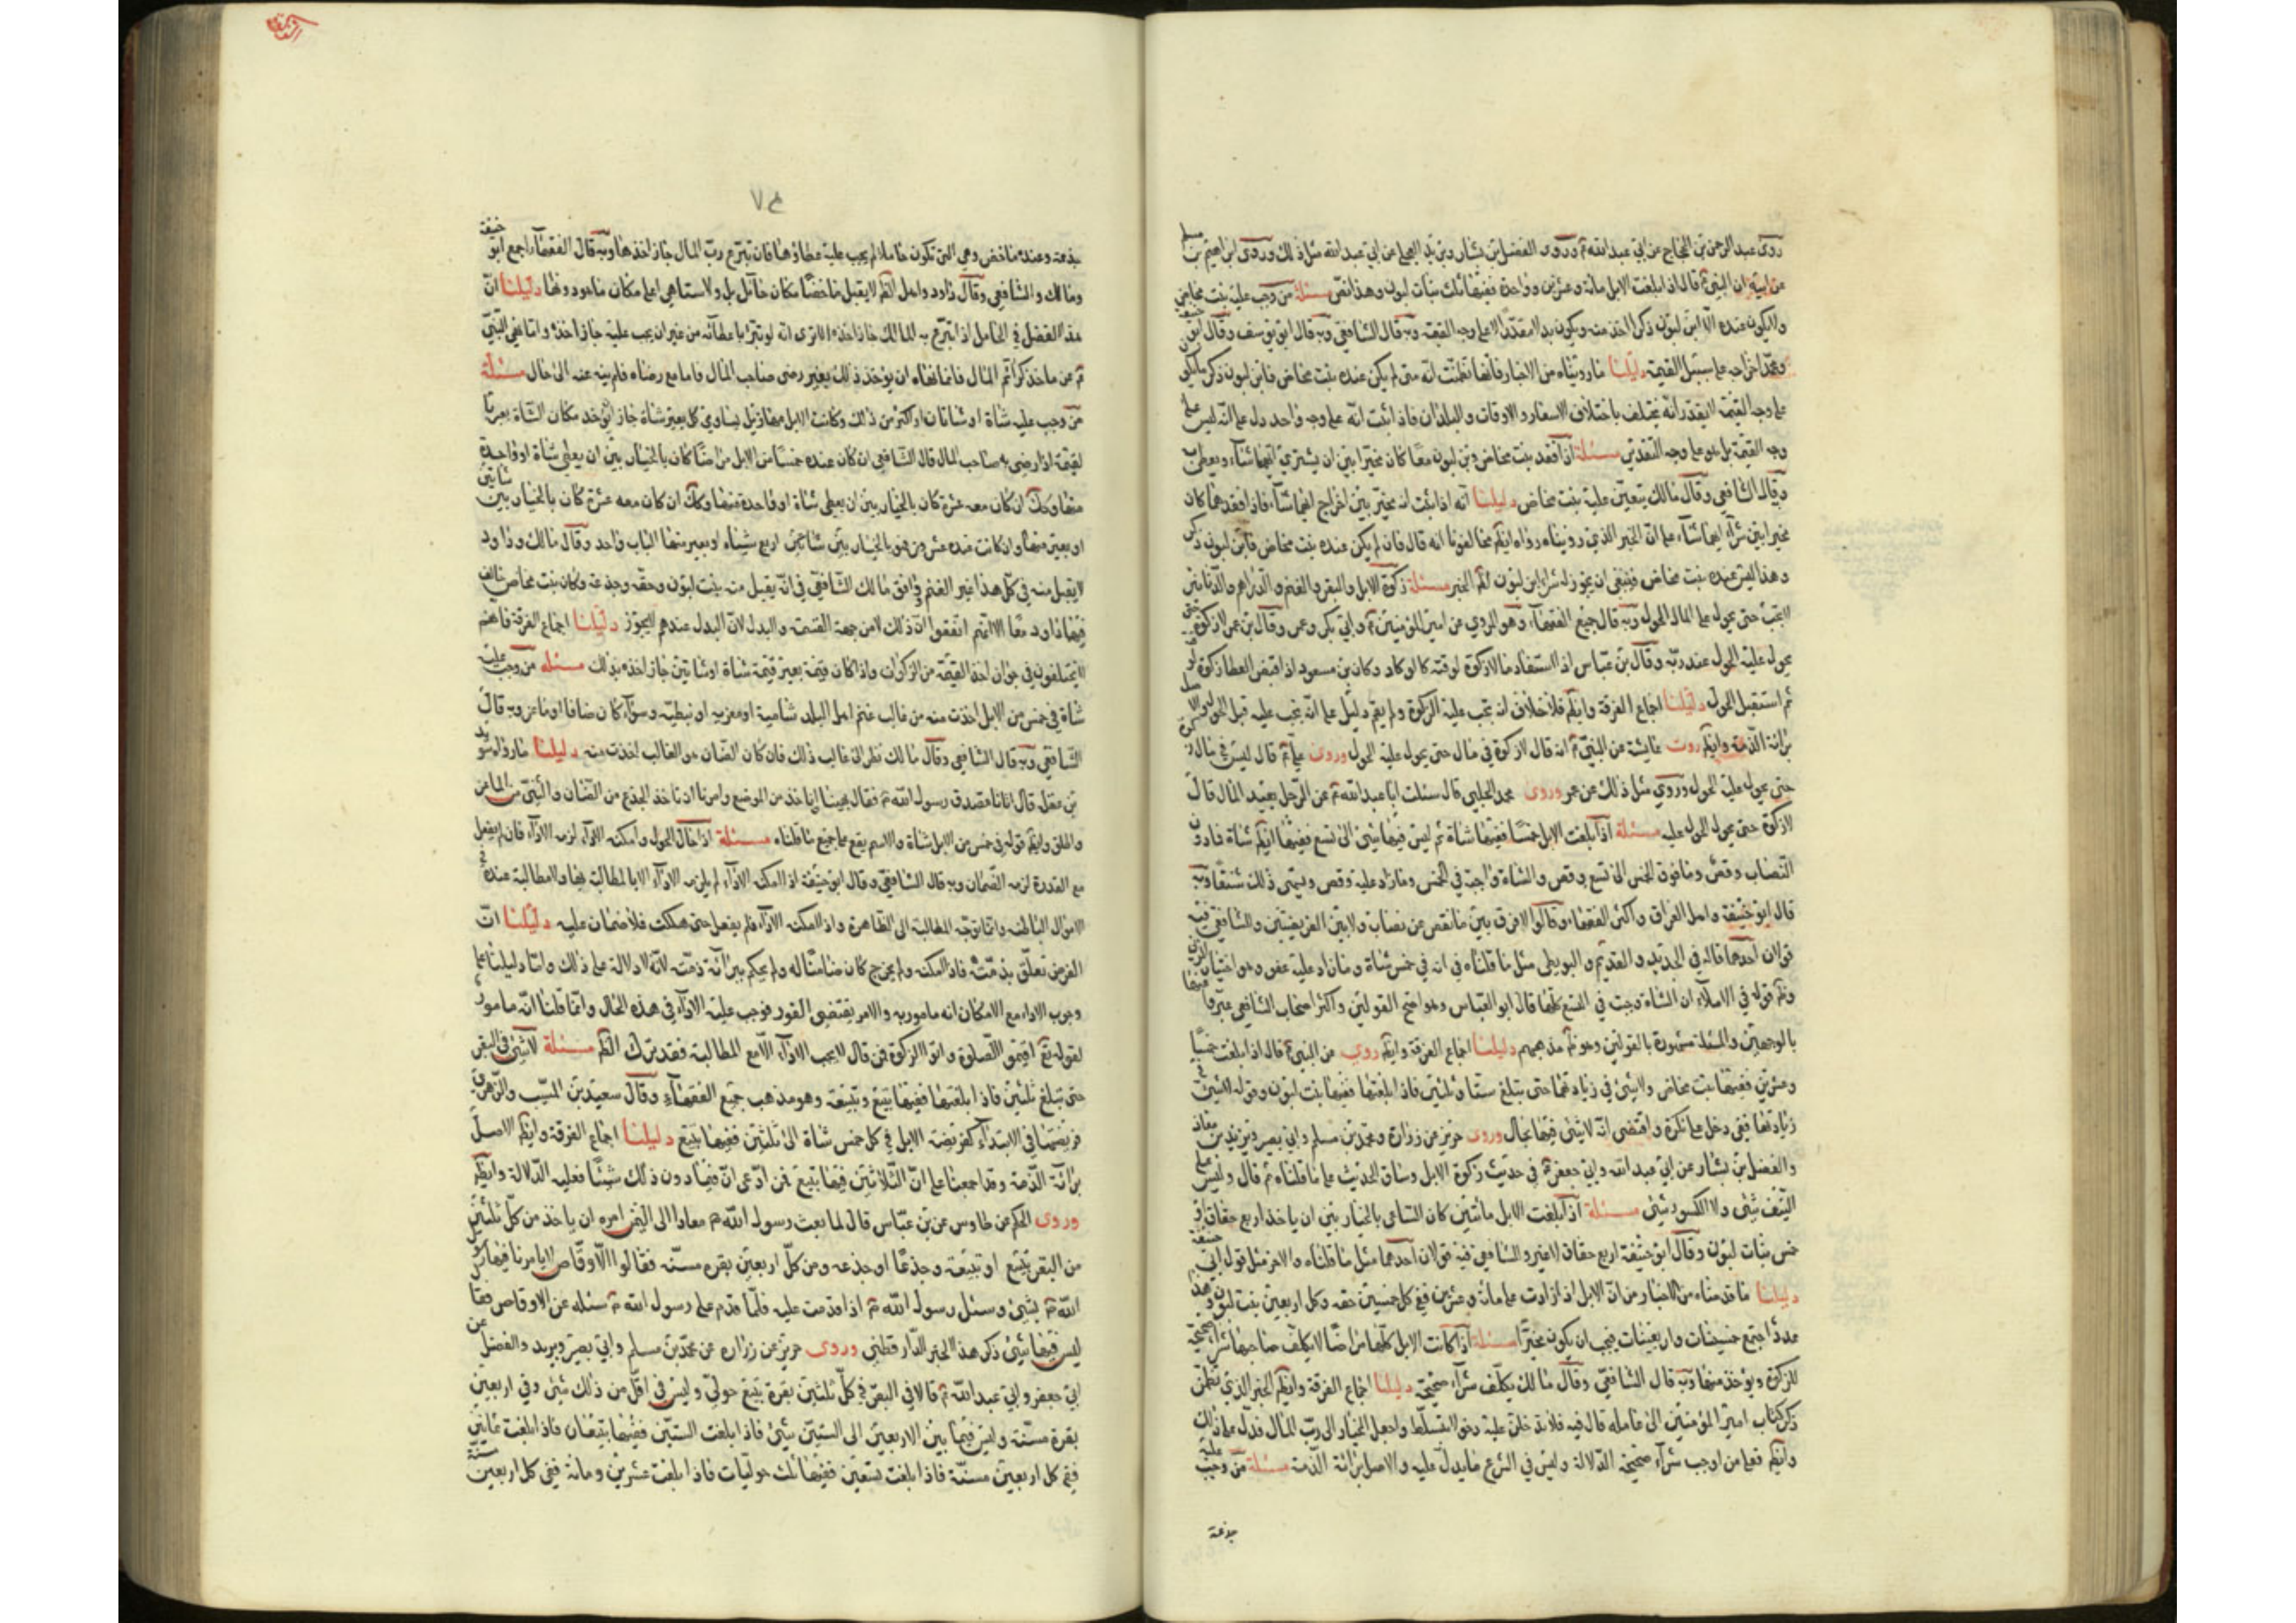 روى عبد الرحمن بن الحجاج عن ابي عبد الله ع وروى الفضيل بن يسار وبريد العجلي عن ابي عبد الله مثل ذلك وروى ابراهيم بن
عن ابيه ان النبي ع قال اذا بلغت الابل مائة وعشرين وواحدة ففيها ثلث بنات لبون وهذا نص مسئلة من وجب عليه بنت مخاض
ولا يكون عنده الا ابن لبون ذكر اخذ منه ويكون بدلا مقدرا لا على وجه القيمة وبه قال الشافعي وبه قال ابو يوسف وقال ابو
اخراجه على سبيل القيمة دليلنا ما رويناه من الاخبار فانها تضمنت انه متى لم يكن عنده بنت مخاض فابن لبون ذكر
على وجه القيمة لا يقدر انه يختلف باختلاف الاسعار والاوقات والبلدان فاذا ثبت انه على وجه واحد دل على انه ليس على
وجه القيمة بل هو على وجه التقدير مسئلة اذا فقد بنت مخاض وبن لبون معا كان مخيرا بين ان يشتري ايهما شاء ويعطى
وقال الشافعي وقال مالك يتعين عليه بنت مخاض دليلنا انه اذا ثبت انه مخير بين اخراج ايهما شاء فاذا فقدهما كان
مخيرا بين شراء ايهما شاء على ان الخبر الذي رويناه رواه ايضا مخالفونا انه قال فان لم يكن عنده بنت مخاض فابن لبون ذكر
وهذا ليس عنده بنت مخاض فينبغي ان يجوز له شراء ابن لبون لظاهر الخبر مسئلة زكوة الابل والبقر والغنم والدراهم والدنانير
لا تجب حتى يحول على المال الحول وبه قال جميع الفقهاء وهو المروي عن امير المؤمنين ع وابي بكر وعمر وقال بن عمر لا زكوة حتى
يحول عليه الحول عند ربه وقال بن عباس اذا استفاد مالا زكوة لوقته وكان بن مسعود اذا قبض العطا زكوة
ثم استقبل الحول دليلنا اجماع الفرقة وايضا فلا خلاف ان تجب عليه الزكوة ولم يقم دليل على انه تجب عليه قبل الحول
برائة الذمة وايضا روت عايشة عن النبي ع انه قال لا زكوة في مال حتى يحول عليه الحول وروى على ع قال ليس في مال
حتى يحول عليه الحول وروى مثل ذلك عن عمر وروى محمد الحلبي قال سئلت ابا عبد الله ع عن الرجل يفيد المال قال
لا زكوة حتى يحول الحول عليه مسئلة اذا بلغت الابل خمسا ففيها شاة ثم ليس فيها شئ الى تسع ففيها ايضا شاة فما دون
النصاب وقص وما فوق الخمس الى تسع وقص والشاة واجبة في الخمس وما زاد عليه وقص ويسمى ذلك شنقا وبه
قال ابو حنيفة واهل العراق واكثر الفقهاء وقالوا لا فرق بين ما نقص عن نصاب ولا بين الفريضتين والشافعي فيه
قولان احدهما قاله في الجديد والقديم والبويطي مثل ما قلناه في انه في خمس شاة وما زاد عليه عفو وهو اختيار
في الاملاء ان الشاة وجبت في التسع كلها قال ابو العباس وهو اصح القولين واكثر اصحاب الشافعي عبروا
بالوجهين والمسئلة مشهورة بالقولين وهو مذهبهم دليلنا اجماع الفرقة وايضا روى عن النبي ع قال اذا بلغت خمسا
وعشرين ففيها بنت مخاض ولا شئ في زيادتها حتى تبلغ ستا وثلثين فاذا بلغتها ففيها بنت لبون وقوله لا شئ
زيادتها نفي دخل على نكرة واقتضى انه لا شئ فيها بحال وروى حريز عن زرارة ومحمد بن مسلم وابي بصير وبريد بن
والفضيل بن يسار عن ابي عبد الله وابي جعفر ع في حديث زكوة الابل وساق الحديث على ما قلناه ثم قال وليس على
النيف شئ ولا الكسور شئ مسئلة اذا بلغت الابل مأتين كان الساعي بالخيار بين ان ياخذ اربع حقاق
خمس بنات لبون وقال ابو حنيفة اربع حقاق لا غير والشافعي فيه قولان احدهما مثل ما قلناه والاخر مثل قول ابي
دليلنا ما قدمناه من الاخبار من ان الابل اذا زادت على مائة وعشرين ففي كل خمسين حقه وكل اربعين بنت لبون
عددا اجتمع خمسينات واربعينات فيجب ان يكون مخيرا مسئلة اذا كانت الابل كلها مراضا لا يكلف صاحبها شراء صحيحة
للزكوة ويؤخذ منها وبه قال الشافعي وقال مالك يكلف شراء صحيحة دليلنا اجماع الفرقة وايضا الخبر الذي تضمن
ذكر كتاب امير المؤمنين الى عامله قال فيه فلا تدخلن عليه دخول متسلط واجعل الخيار الى رب المال فدل على ذلك
وايضا فعلى من اوجب شراء صحيحة الدلالة وليس في الشرع ما يدل عليه والاصل برائة الذمة مسئلة من وجب عليه
جذعة
جذعة وعنده ماخض وهي التي تكون حاملا لم يجب عليه عطاؤها فان تبرع رب المال جاز اخذها وبه قال الفقهاء اجمع ابو حنيفة
ومالك والشافعي وقال داود واهل الظاهر لا يقبل ماخضا مكان حائل ولا سنا هي اعلى مكان ما هو دونها دليلنا ان
هذا الفضل في الحامل اذا تبرع به المالك جاز اخذه الا ترى انه لو تبرع باعطائه من غير ان يجب عليه جاز اخذه وانما نهى النبي
ع عن ماخذ كرائم المال فانما نهاه ان يؤخذ ذلك بغير رضى صاحب المال فاما مع رضاه فلم ينه عنه الى حال مسئلة
من وجب عليه شاة او شاتان او اكثر من ذلك وكانت الابل مهازيل يساوي كل بعير شاة جاز ان يؤخذ مكان الشاة بعير
لقيمة اذا رضى به صاحب المال قال الشافعي ان كان عنده خمسا من الابل مراضا كان بالخيار بين ان يعطى شاة او واحدة
منها وكذلك ان كان معه عشرة كان بالخيار بين ان يعطى شاة او واحدة منها وكذلك ان كان معه عشرة كان بالخيار بين شاتين
او بعيرين منها وان كانت عنده عشرون فهو بالخيار بين اربع شياه او بعير منها الباب واحد وقال مالك وداود
لا يقبل منه في كل هذا غير الغنم ووافق مالك الشافعي في انه يقبل منه بنت لبون وحقه وجذعة مكان بنت مخاض
داود معا الا انهم اتفقوا ان ذلك لا من جهة القيمة والبدل لان البدل عندهم لا يجوز دليلنا اجماع الفرقة فانهم
لا يختلفون في جواز اخذ القيمة من الزكوات واذا كان قيمة بعير قيمة شاة او شاتين جاز اخذه بذلك مسئلة من وجب عليه
شاة في خمس من الابل اخذت منه من غالب غنم اهل البلد شامية او مغربية او نبطية وسواء كان ضانا او ماعز وبه قال
الشافعي وبه قال الشافعي وقال مالك نظر الى غالب ذلك فان كان الضان هو الغالب اخذت منه دليلنا ما رواه سويد
بن غفلة قال اتانا مصدق رسول الله ع فقال نهينا ان ناخذ من الرضع وامرنا ان ناخذ الجذع من الضان والثني من الماعز
وايضا قوله في خمس من الابل شاة والاسم يقع على جميع ما قلناه مسئلة اذا حال الحول وامكنه الاداء لزمه الاداء فان لم يفعل
مع القدرة لزمه الضمان وبه قال الشافعي وقال ابو حنيفة اذا امكنه الاداء لم يلزمه الاداء الا بالمطالبة بها ولا مطالبة عنده
الاموال الباطنة وانما تتوجه المطالبة الى الظاهرة واذا امكنه الاداء فلم يفعل حتى هلكت فلا ضمان عليه دليلنا ان
الفرض تعلق بذمته فاذا امكنه ولم يخرج كان ضامنا له ولم يحكم ببرائة ذمته لانه لا دلالة على ذلك واما دليلنا على
وجوب الاداء مع الامكان انه مامور به والامر يقتضي الفور فوجب عليه الاداء في هذه الحال وانما قلنا انه مامور
لقوله تع اقيموا الصلوة واتوا الزكوة فمن قال لا يجب الاداء الا مع المطالبة فقد ترك الظاهر مسئلة لا شئ في البقر
حتى تبلغ ثلثين فاذا بلغتها ففيها تبيع وتبيعة وهو مذهب جميع الفقهاء وقال سعيد بن المسيب والزهري
فريضتها في الابتداء كفريضة الابل في كل خمس شاة الى ثلثين ففيها تبيع دليلنا اجماع الفرقة وايضا الاصل
برائة الذمة وقد اجمعنا على ان الثلاثين فيها تبيع فمن ادعى ان فيما دون ذلك شيئا فعليه الدلالة وايضا
وروى الحكم عن طاوس عن بن عباس قال لما بعث رسول الله ص معاذا الى اليمن امره ان ياخذ من كل ثلثين
من البقر تبيع او تبيعة وجذعا او جذعه ومن كل اربعين بقره مسنه فقالوا الاوقاص
الله ص بشئ وسئل رسول الله ص اذا قدمت عليه فلما قدم على رسول الله ص سئله عن الاوقاص فقا
ليس فيها شئ ذكر هذا الخبر الدارقطني وروى حريز عن زراره عن محمد بن مسلم وابي بصير وبريد والفضيل عن
ابي جعفر وابي عبد الله ع قالا في البقر في كل ثلثين بقرة تبيع حولي وليس في اقل من ذلك شئ وفي اربعين
بقرة مسنة وليس فيما بين الاربعين الى الستين شئ فاذا بلغت الستين ففيها تبيعان فاذا بلغت ثمانين
ففي كل اربعين مسنة فاذا بلغت تسعين ففيها ثلث حوليات فاذا بلغت عشرين ومائة ففي كل اربعين مسنة